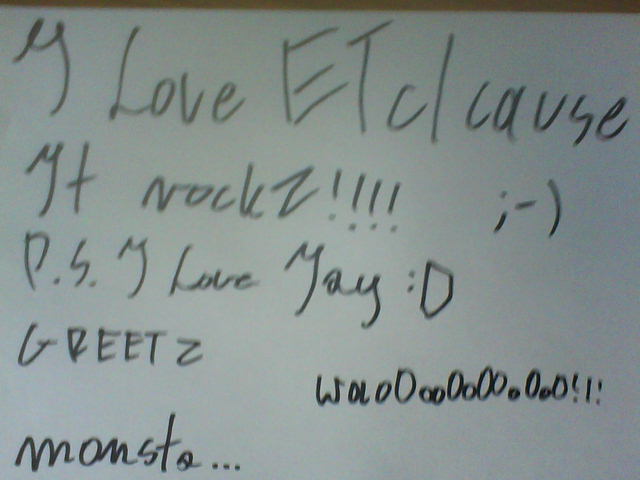 I Love ETc/ cause
It rockZ!!!! ;-)
P.S. I Love Jay :D
GREETZ
WOAoOooOoOOoOoO!!!
monsta...